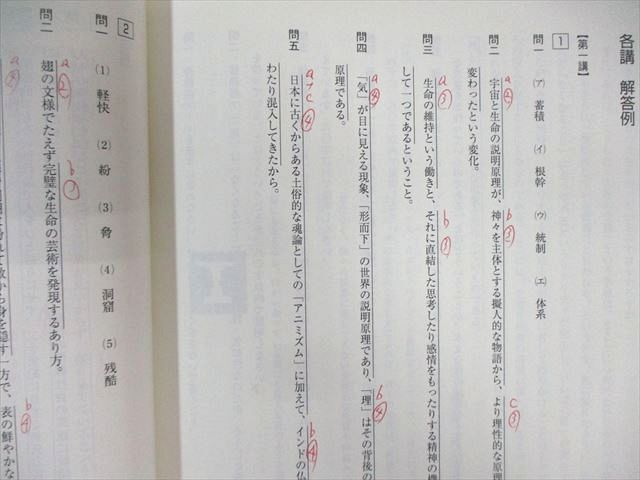 各講 解答例
【第一講】
1
問一 (ア) 蓄積 (イ) 根幹 (ウ) 統制 (エ) 体系
a② b③ c③
問二 宇宙と生命の説明原理が、神々を主体とする擬人的な物語から、より理性的な原
変わったという変化。
a③ b③
問三 生命の維持という働きと、それに直結した思考したり感情をもったりする精神の機
して一つであるということ。
a④ b④
問四 「気」が目に見える現象、「形而下」の世界の説明原理であり、「理」はその背後の
原理である。
a+c④ b④
問五 日本に古くからある土俗的な魂論としての「アニミズム」に加えて、インドの仏
わたり混入してきたから。
2
問一 (1) 軽快 (2) 粉 (3) 脅 (4) 洞窟 (5) 残酷
a② b③
問二 翅の文様でたえず完璧な生命の芸術を発現するあり方。
b④
身を隠す一方で、表の鮮やかな